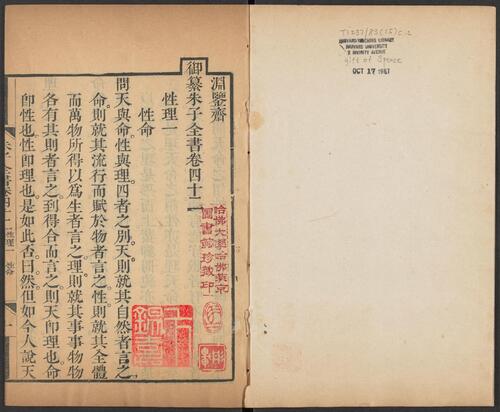 淵鑒齋
御纂朱子全書卷四十二
性理一
性命
問天與命性與理四者之別天則就其自然者言之
命則就其流行而賦於物者言之性則就其全體
而萬物所得以爲生者言之理則就其事事物物
各有其則者言之到得合而言之則天卽理也命
卽性也性卽理也是如此否曰然但如今人說天
朱子全書卷四十二 性理一 性命
一
哈佛大學哈佛燕京
圖書館珍藏印
T1237/83(15) c.2
HARVARD-YENCHING LIBRARY
HARVARD UNIVERSITY
2 DIVINITY AVENUE
gift of Spence
OCT 17 1987